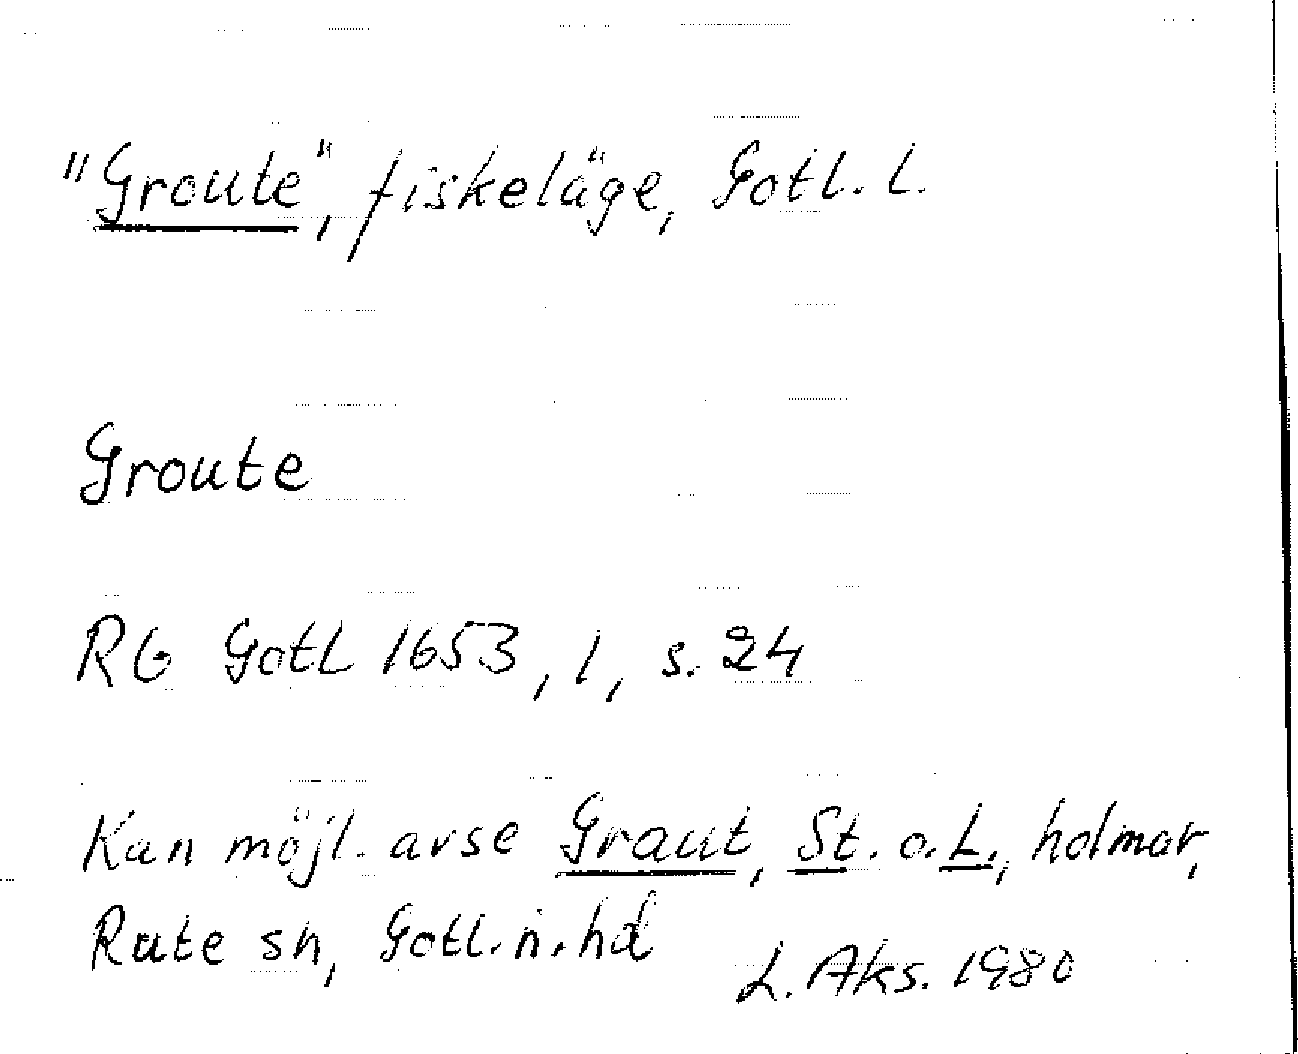 "Groute", fiskeläge, Gotl. l.
Groute
RG Gotl 1653, 1, s. 24
Kan möjl. avse Graut, St. o. L., holmar,
Rute sn, Gotl. n. hd
L. Aks. 1980